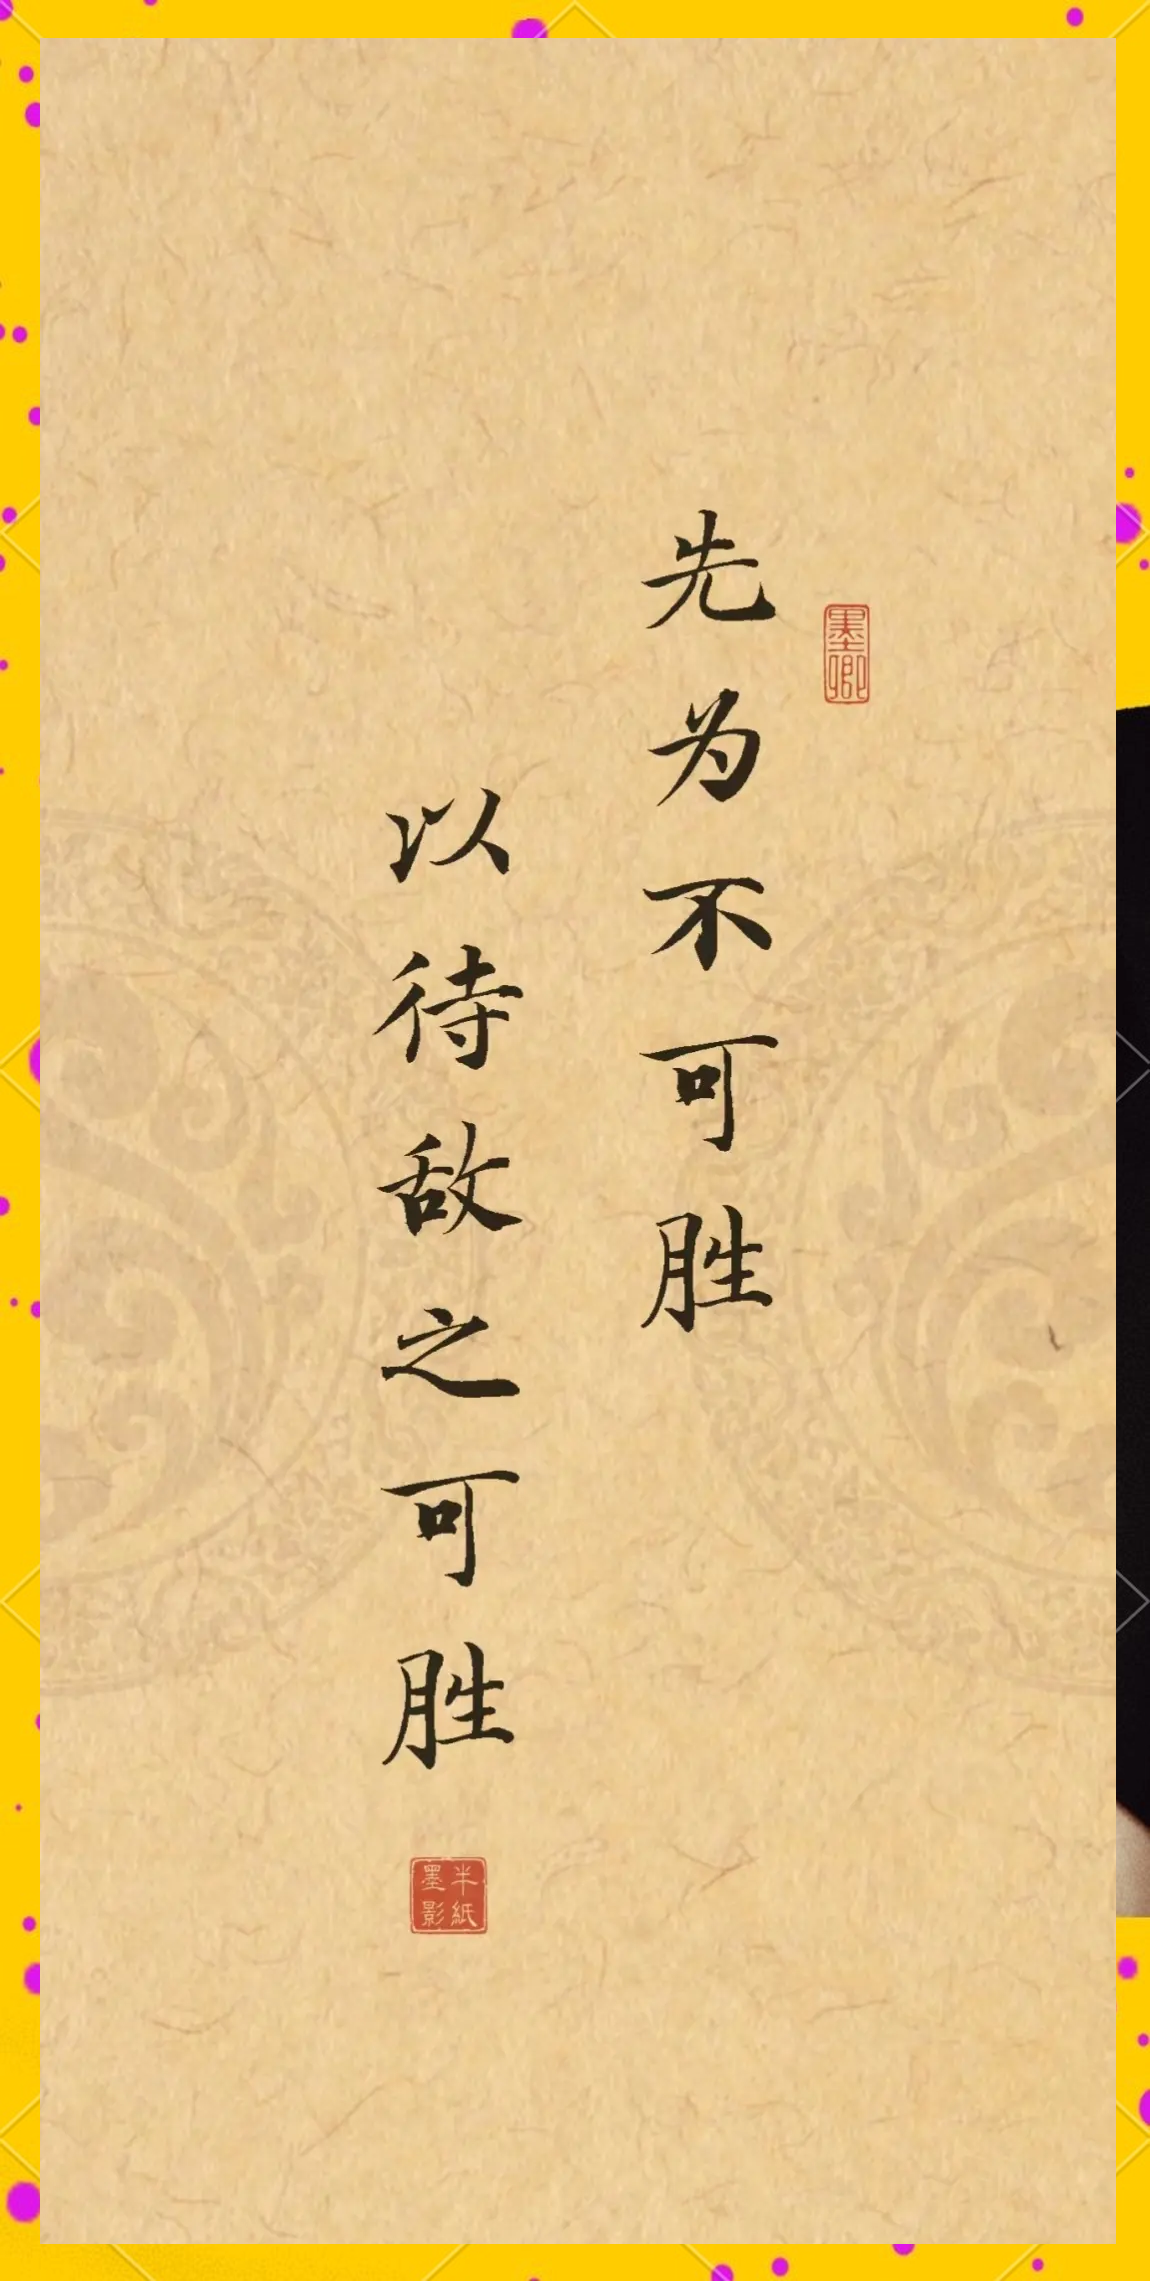 先为不可胜
以待敌之可胜
墨卿
半紙
墨影